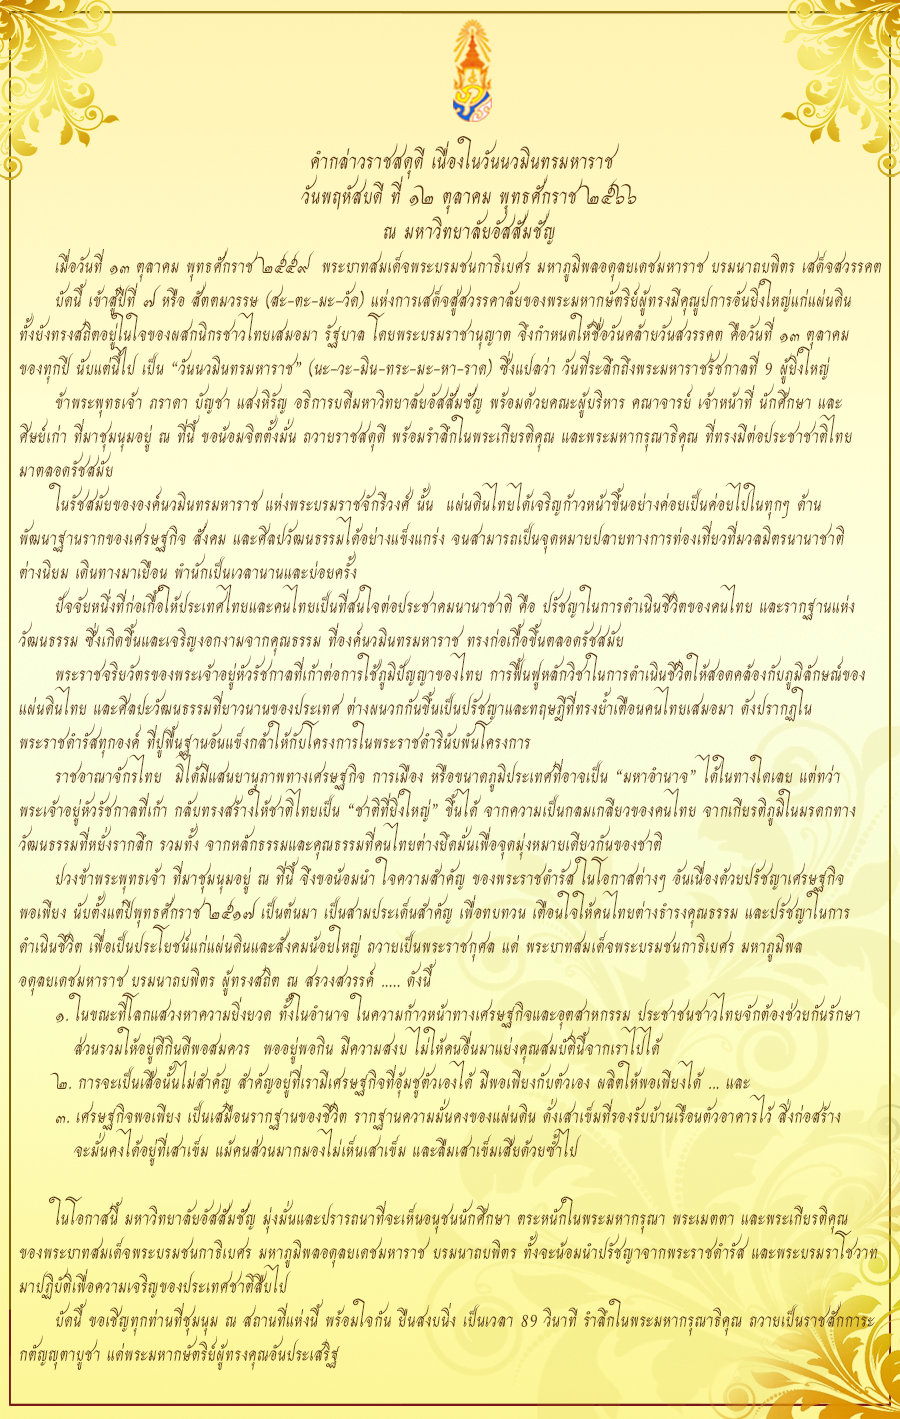 คำกล่าวราชสดุดี เนื่องในวันนวมินทรมหาราช
วันพฤหัสบดี ที่ ๑๒ ตุลาคม พุทธศักราช ๒๕๖๖
ณ มหาวิทยาลัยอัสสัมชัญ
เมื่อวันที่ ๑๓ ตุลาคม พุทธศักราช ๒๕๕๙ พระบาทสมเด็จพระบรมชนกาธิเบศร มหาภูมิพลอดุลยเดชมหาราช บรมนาถบพิตร เสด็จสวรรคต
บัดนี้ เข้าสู่ปีที่ ๗ หรือ สัตตมวรรษ (สะ-ตะ-มะ-วัด) แห่งการเสด็จสู่สวรรคาลัยของพระมหากษัตริย์ผู้ทรงมีคุณูปการอันยิ่งใหญ่แก่แผ่นดิน
ทั้งยังทรงสถิตอยู่ในใจของผสกนิกรชาวไทยเสมอมา รัฐบาล โดยพระบรมราชานุญาต จึงกำหนดให้ชื่อวันคล้ายวันสวรรคต คือวันที่ ๑๓ ตุลาคม
ของทุกปี นับแต่นี้ไป เป็น “วันนวมินทรมหาราช” (นะ-วะ-มิน-ทระ-มะ-หา-ราด) ซึ่งแปลว่า วันที่ระลึกถึงพระมหาราชรัชกาลที่ 9 ผู้ยิ่งใหญ่
ข้าพระพุทธเจ้า ภราดา บัญชา แสงหิรัญ อธิการบดีมหาวิทยาลัยอัสสัมชัญ พร้อมด้วยคณะผู้บริหาร คณาจารย์ เจ้าหน้าที่ นักศึกษา และ
ศิษย์เก่า ที่มาชุมนุมอยู่ ณ ที่นี้ ขอน้อมจิตตั้งมั่น ถวายราชสดุดี พร้อมรำลึกในพระเกียรติคุณ และพระมหากรุณาธิคุณ ที่ทรงมีต่อประชาชาติไทย
มาตลอดรัชสมัย
ในรัชสมัยขององค์นวมินทรมหาราช แห่งพระบรมราชจักรีวงศ์ นั้น แผ่นดินไทยได้เจริญก้าวหน้าขึ้นอย่างค่อยเป็นค่อยไปในทุกๆ ด้าน
พัฒนาฐานรากของเศรษฐกิจ สังคม และศิลปวัฒนธรรมได้อย่างแข็งแกร่ง จนสามารถเป็นจุดหมายปลายทางการท่องเที่ยวที่มวลมิตรนานาชาติ
ต่างนิยม เดินทางมาเยือน พำนักเป็นเวลานานและบ่อยครั้ง
ปัจจัยหนึ่งที่ก่อเกื้อให้ประเทศไทยและคนไทยเป็นที่สนใจต่อประชาคมนานาชาติ คือ ปรัชญาในการดำเนินชีวิตของคนไทย และรากฐานแห่ง
วัฒนธรรม ซึ่งเกิดขึ้นและเจริญงอกงามจากคุณธรรม ที่องค์นวมินทรมหาราช ทรงก่อเกื้อขึ้นตลอดรัชสมัย
พระราชจริยวัตรของพระเจ้าอยู่หัวรัชกาลที่เก้าต่อการใช้ภูมิปัญญาของไทย การฟื้นฟูหลักวิชาในการดำเนินชีวิตให้สอดคล้องกับภูมิลักษณ์ของ
แผ่นดินไทย และศิลปะวัฒนธรรมที่ยาวนานของประเทศ ต่างผนวกกันขึ้นเป็นปรัชญาและทฤษฎีที่ทรงย้ำเตือนคนไทยเสมอมา ดังปรากฏใน
พระราชดำรัสทุกองค์ ที่ปูพื้นฐานอันแข็งกล้าให้กับโครงการในพระราชดำรินับพันโครงการ
ราชอาณาจักรไทย มิได้มีแสนยานุภาพทางเศรษฐกิจ การเมือง หรือขนาดภูมิประเทศที่อาจเป็น “มหาอำนาจ” ได้ในทางใดเลย แต่ทว่า
พระเจ้าอยู่หัวรัชกาลที่เก้า กลับทรงสร้างให้ชาติไทยเป็น “ชาติที่ยิ่งใหญ่” ขึ้นได้ จากความเป็นกลมเกลียวของคนไทย จากเกียรติภูมิในมรดกทาง
วัฒนธรรมที่หยั่งรากลึก รวมทั้ง จากหลักธรรมและคุณธรรมที่คนไทยต่างยึดมั่นเพื่อจุดมุ่งหมายเดียวกันของชาติ
ปวงข้าพระพุทธเจ้า ที่มาชุมนุมอยู่ ณ ที่นี้ จึงขอน้อมนำ ใจความสำคัญ ของพระราชดำรัส ในโอกาสต่างๆ อันเนื่องด้วยปรัชญาเศรษฐกิจ
พอเพียง นับตั้งแต่ปีพุทธศักราช ๒๕๑๗ เป็นต้นมา เป็นสามประเด็นสำคัญ เพื่อทบทวน เตือนใจให้คนไทยต่างธำรงคุณธรรม และปรัชญาในการ
ดำเนินชีวิต เพื่อเป็นประโยชน์แก่แผ่นดินและสังคมน้อยใหญ่ ถวายเป็นพระราชกุศล แด่ พระบาทสมเด็จพระบรมชนกาธิเบศร มหาภูมิพล
อดุลยเดชมหาราช บรมนาถบพิตร ผู้ทรงสถิต ณ สรวงสวรรค์ ..... ดังนี้
๑. ในขณะที่โลกแสวงหาความยิ่งยวด ทั้งในอำนาจ ในความก้าวหน้าทางเศรษฐกิจและอุตสาหกรรม ประชาชนชาวไทยจักต้องช่วยกันรักษา
ส่วนรวมให้อยู่ดีกินดีพอสมควร พออยู่พอกิน มีความสงบ ไม่ให้คนอื่นมาแย่งคุณสมบัตินี้จากเราไปได้
๒. การจะเป็นเสือนั้นไม่สำคัญ สำคัญอยู่ที่เรามีเศรษฐกิจที่อุ้มชูตัวเองได้ มีพอเพียงกับตัวเอง ผลิตให้พอเพียงได้ ... และ
๓. เศรษฐกิจพอเพียง เป็นเสมือนรากฐานของชีวิต รากฐานความมั่นคงของแผ่นดิน ดั่งเสาเข็มที่รองรับบ้านเรือนตัวอาคารไว้ สิ่งก่อสร้าง
จะมั่นคงได้อยู่ที่เสาเข็ม แม้คนส่วนมากมองไม่เห็นเสาเข็ม และลืมเสาเข็มเสียด้วยซ้ำไป
ในโอกาสนี้ มหาวิทยาลัยอัสสัมชัญ มุ่งมั่นและปรารถนาที่จะเห็นอนุชนนักศึกษา ตระหนักในพระมหากรุณา พระเมตตา และพระเกียรติคุณ
ของพระบาทสมเด็จพระบรมชนกาธิเบศร มหาภูมิพลอดุลยเดชมหาราช บรมนาถบพิตร ทั้งจะน้อมนำปรัชญาจากพระราชดำรัส และพระบรมราโชวาท
มาปฏิบัติเพื่อความเจริญของประเทศชาติสืบไป
บัดนี้ ขอเชิญทุกท่านที่ชุมนุม ณ สถานที่แห่งนี้ พร้อมใจกัน ยืนสงบนิ่ง เป็นเวลา 89 วินาที รำลึกในพระมหากรุณาธิคุณ ถวายเป็นราชสักการะ
กตัญญุตาบูชา แด่พระมหากษัตริย์ผู้ทรงคุณอันประเสริฐ